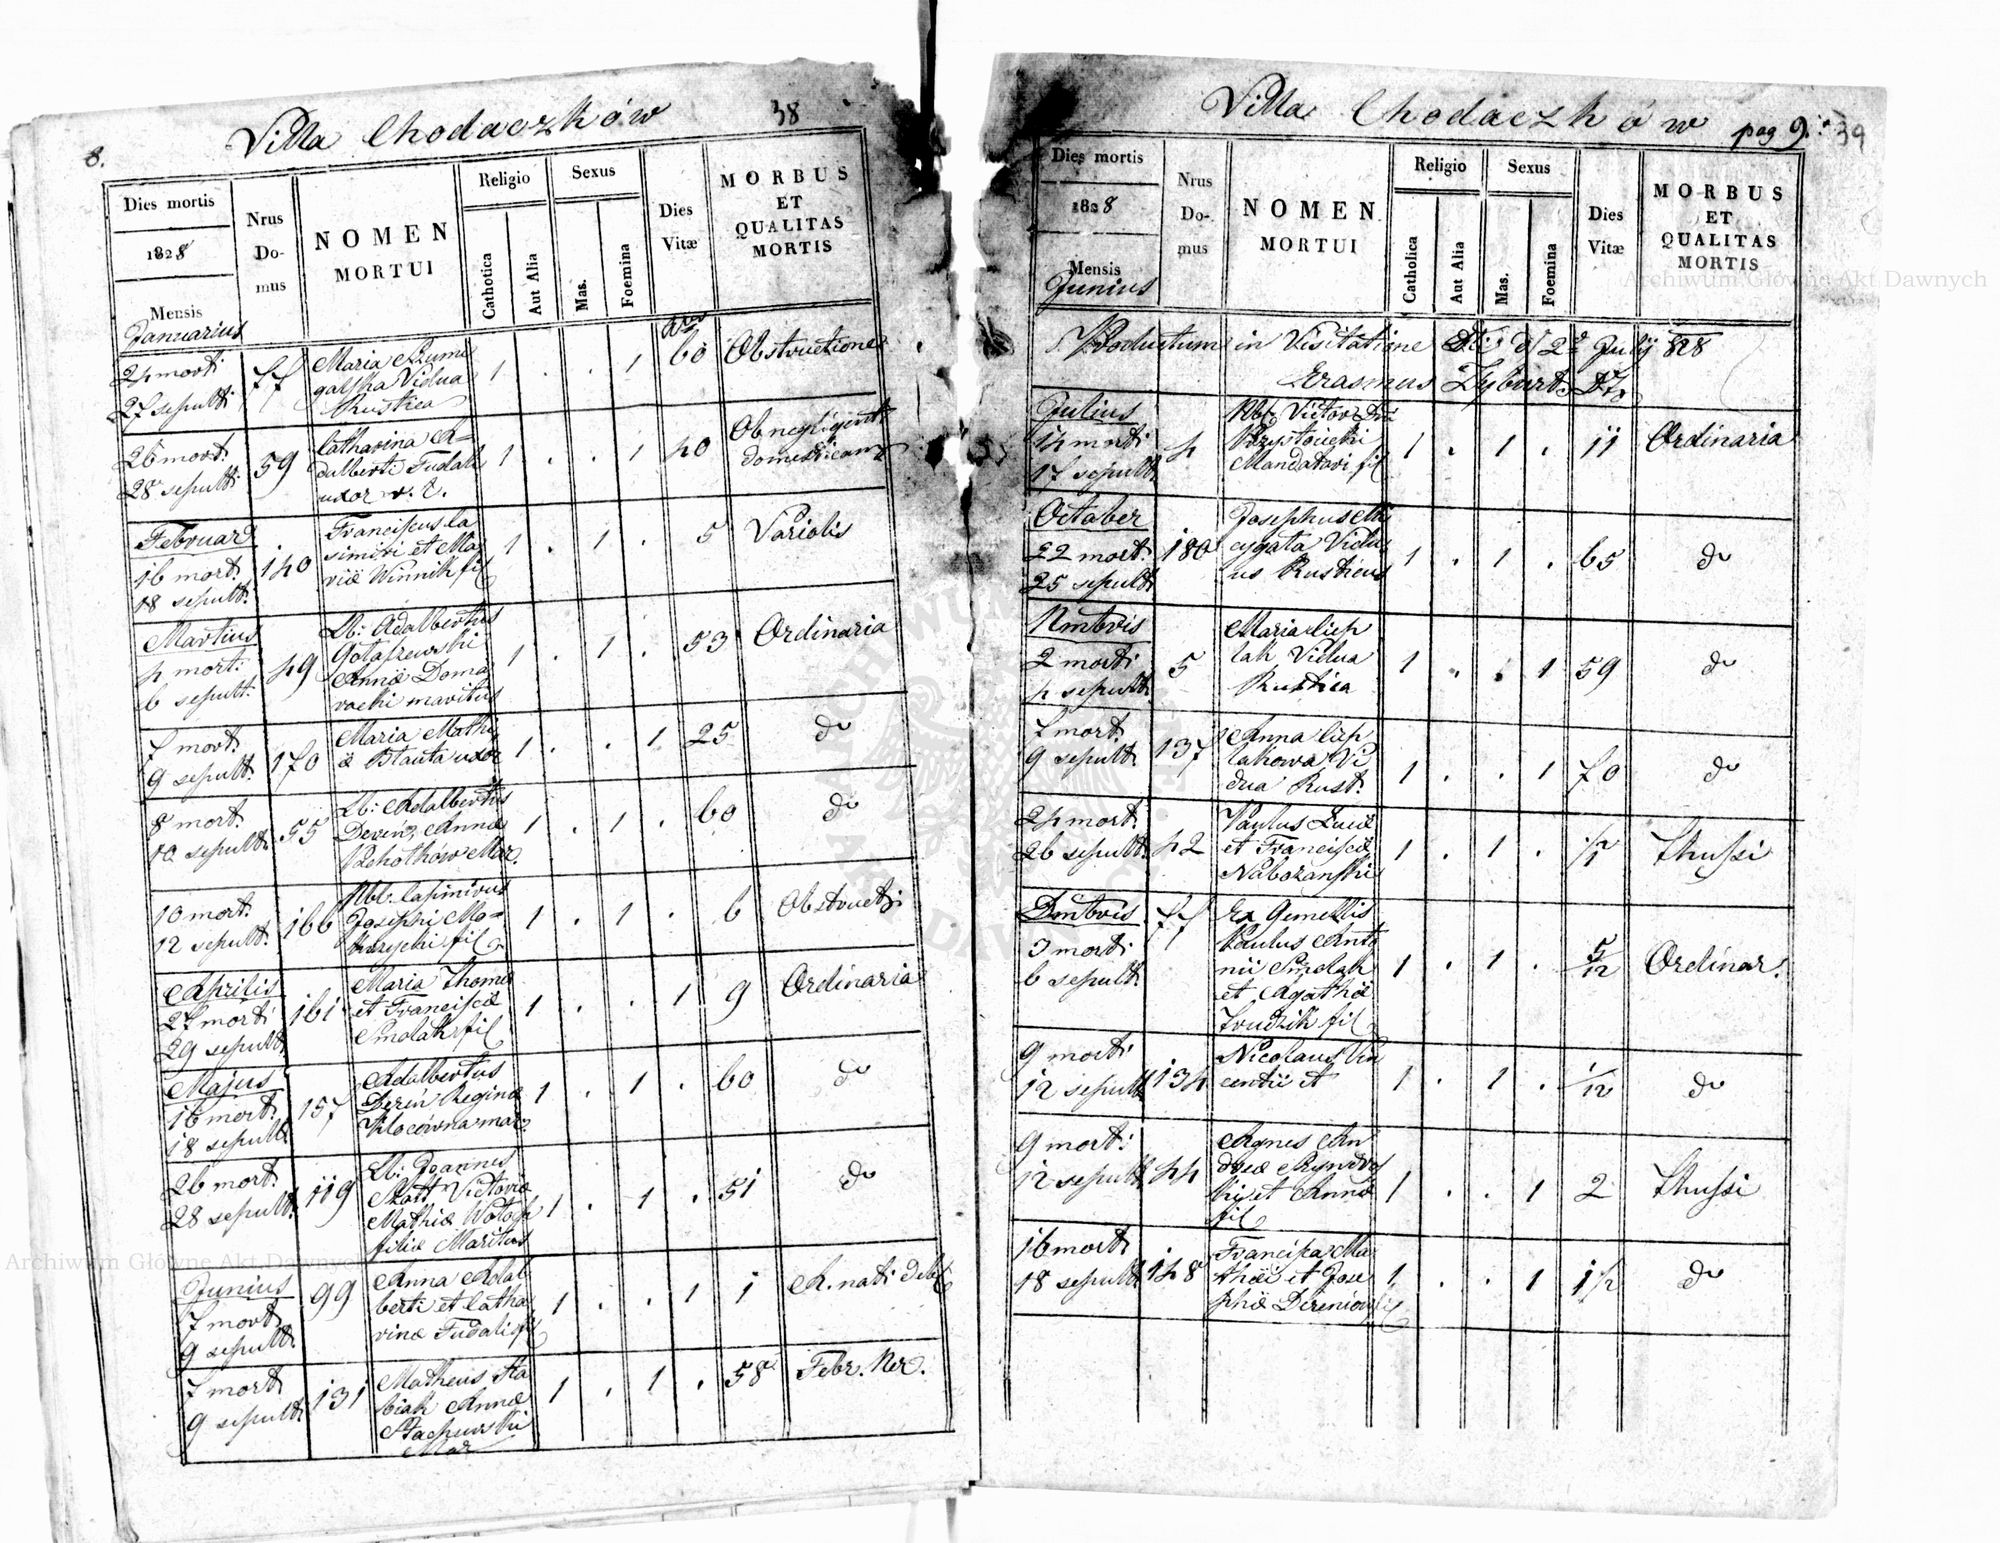 8.
Villa Chodaczków
38
Dies mortis
1828
Mensis
Januarius
Nrus Do- mus
NOMEN MORTUI
Religio
Catholica
Aut Alia
Sexus
Mas.
Foemina
Dies Vitæ
MORBUS ET QUALITAS MORTIS
24 mort:
27 sepult:
77
Maria
galska Vidua
Rustica
1 . . 1
60
Obstructione
26 mort:
28 sepult:
59
Catharina A=
dalberti Fudali
uxor v. r.
1 . . 1
40
Ob negligent
Februar
16 mort:
18 sepult:
140
Franciscus Ca
simiri et Ma
riæ Winnik fil
1 . 1 .
5
Variolis
Martius
4 morti
6 sepult:
49
Lb: Adalbertus
Gołaszewski
Annæ Doma
racki maritus
1 . 1 .
53
Ordinaria
7 mort:
9 sepult:
170
Maria Mathi
uxor
1 . . 1
25
do
8 mort:
10 sepult:
55
Lb: Adalbertus
Annæ
Mar.
1 . 1 .
60
do
10 mort:
12 sepult:
166
Casimirus
Josephi Mo=
krzycki fil
1 . 1 .
6
Obstructi
Aprilis
27 morti
29 sepult:
161
Maria Thomæ
et Franciscæ
Smolak fil
1 . . 1
9
Ordinaria
Majus
16 mort:
18 sepult:
157
Adalbertus
Dereń Reginæ
Klocówna mar
1 . 1 .
60
do
26 mort:
28 sepult:
119
Lb: Joannes
Victoriæ
Mathiæ
filiæ Maritus
1 . 1 .
51
do
Junius
7 mort:
9 sepult:
99
Anna Adal
berti et Catha
rinæ Fudali fil
1 . . 1
1
A. nati debil
7 mort:
9 sepult:
131
Matheus
Annæ
Mar
1 . 1 .
58
Febr. Ner.
Villa Chodaczków
pag 9.
39
Dies mortis
1828
Mensis
Junius
Nrus Do- mus
NOMEN MORTUI
Religio
Catholica
Aut Alia
Sexus
Mas.
Foemina
Dies Vitæ
MORBUS ET QUALITAS MORTIS
Productum in Visitatione
July 828
Erasmus
Julius
14 morti
17 sepult:
4
Victor
Mandatari fil
1 . 1 .
11
Ordinaria
October
22 mort:
25 sepult:
180
Josephus Mi
cygata Vidu
us Rusticus
1 . 1 .
65
do
Nmbris
2 morti
4 sepult:
5
Maria Ciep
lak Vidua
Rustica
1 . . 1
59
do
7 mort:
9 sepult:
137
Anna Ciep
lakowa Vi
dua Rust:
1 . . 1
70
do
24 mort:
26 sepult:
42
Paulus Lucæ
et Franciscæ
Nabożański
1 . 1 .
Thussi
Dmbris
3 morti
6 sepult:
77
Ex Gemellis
Paulus Anto
nii Smolak
et Agathæ
fil
1 . 1 .
5/12
Ordinar.
9 morti
12 sepult:
134
Nicolaus Vin
centii et
1 . 1 .
1/12
do
9 mort:
12 sepult:
44
Agnes An
dreæ
ki et Annæ
fil
1 . . 1
2
Thussi
16 mort:
18 sepult:
148
Francisca Ma
thæi et Jose
phæ
1 . . 1
1/2
do
Archiwum Główne Akt Dawnych
Archiwum Główne Akt Dawnych